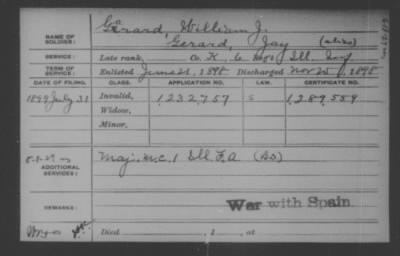 Ga
NAME OF SOLDIER: Gerard, William J.
Gerard, Jay (alias)
SERVICE: Late rank, Co. K, 6 Reg't Ill. Inf.
TERM OF SERVICE: Enlisted June 21, 1898 Discharged Nov 25, 1898
DATE OF FILING. CLASS. APPLICATION NO. LAW. CERTIFICATE NO.
1899 July 31 Invalid, 1,232,757 S 1,289,559
Widow,
Minor,
ADDITIONAL SERVICES: Maj. M.C. 1 Ill. F.A.
REMARKS: War with Spain.
Died , 1 , at